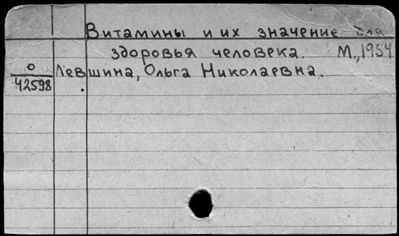 Витамины и их значение для
здоровья человека. М., 1954
О
42598
Левшина, Ольга Николаевна.